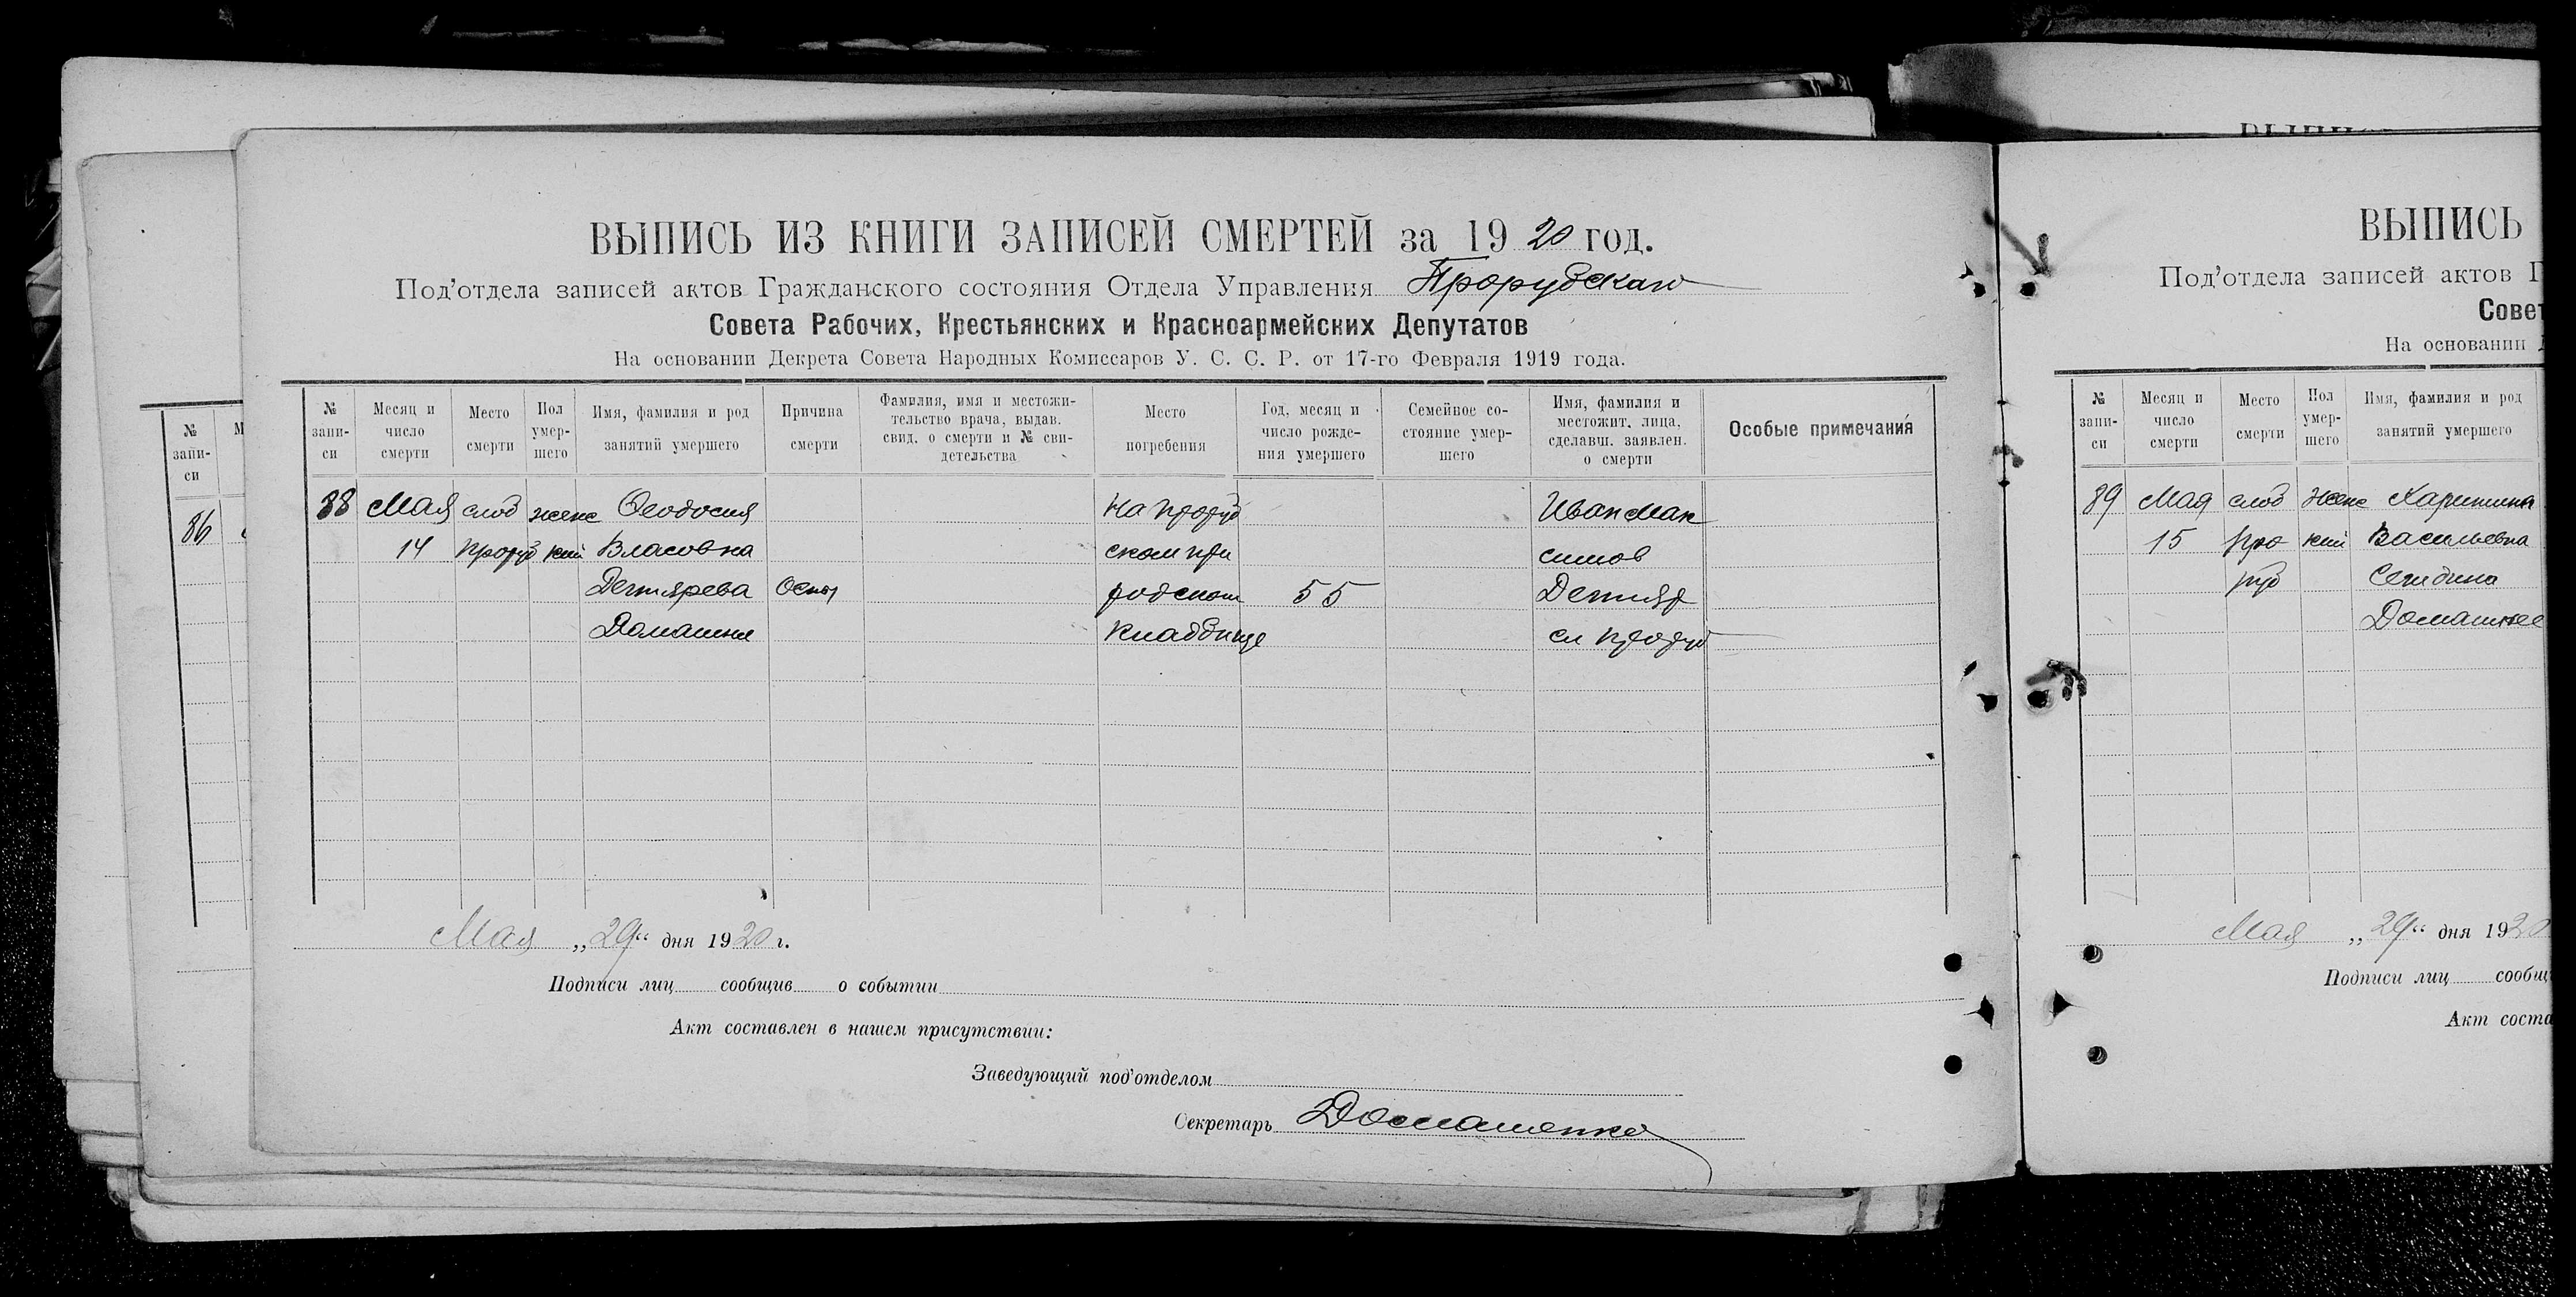 ВЫПИСЬ ИЗ КНИГИ ЗАПИСЕЙ СМЕРТЕЙ за 1920 год.
Под'отдела записей актов Гражданского состояния Отдела Управления Прорубскаго
Совета Рабочих, Крестьянских и Красноармейских Депутатов
На основании Декрета Совета Народных Комиссаров У. С. С. Р. от 17-го Февраля 1919 года.
№ запи-си
Месяц и число смерти
Место смерти
Пол умер-шего
Имя, фамилия и род занятий умершего
Причина смерти
Фамилия, имя и местожи-тельство врача, выдав. свид. о смерти и № сви-детельства
Место погребения
Год, месяц и число рожде-ния умершего
Семейное со-стояние умер-шего
Имя, фамилия и местожит. лица, сделавш. заявлен. о смерти
Особые примечания
88 Мая слод женс Феодосия На проруб Иван Мак
14 проруб кий Власовна ском при симов
Дегтярева Оспы родском 55 Дегтяр
Домашня кладбище сл проруб
Мая „29“ дня 1920 г.
Подписи лиц сообщив о событии
Акт составлен в нашем присутствии:
Заведующий под'отделом
Секретарь Домашенко
№ запи-си
М
86
ВЫПИСЬ
Под'отдела записей актов Г
Совет
На основании
№ запи-си
Месяц и число смерти
Место смерти
Пол умер-шего
Имя, фамилия и род занятий умершего
89 Мая слоб женс Харитина
15 про кий Васильевна
руб
Домашнее
Мая „29“ дня 1920
Подписи лиц сообщи
Акт соста